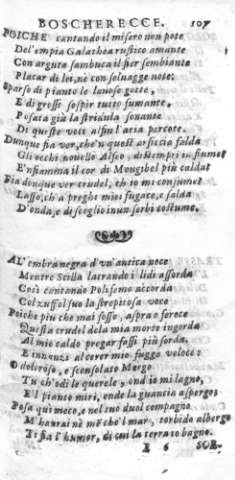 BOSCHERECCE. 107
POICHE cantando il misero non pote
Del'empia Galathea rustico amante
Con arguta sambuca il fier sembiante
Placar di lei, nè con seluagge note:
Sparso di pianto le lanose gotte,
E di grossi sospir tutto fumante,
Posata giù la stridula sonante
Di queste voci alfin l'aria percote.
Dunque fia ver, che'n quest'arsiccia falda
Gli occhi nouello Alfeo, distempri in fiume?
E'nfiamma il cor di Mongibel più calda?
Fia dunque ver crudel, ch'io mi consumi
Lasso, ch'a preghi miei fugace, e salda
D'onda, e di scoglio in un serbi costume.
AL'embra negra d'vn'antica noce
Mentre Scilla latrando i lidi assorda
Così cantando Polifemo accorda
Col zuffol suo la strepitosa voce
Poiche piu che mai fosse, aspra e feroce
Questa crudel dela mia morte ingorda
Al mio caldo pregar fassi più sorda,
E innanzi al correr mio fugge veloce:
O doloroso, e sconsolato Mergo
Tu ch'odi le querele, ond'io mi lagno,
E'l pianto miri, onde la guancia aspergo;
Posa qui meco, e nel tuo duol compagno
M'haurai nè mè che'l mar, torbido albergo
Ti sia l'humor, di cui la terra io bagno.
E 6 SOR-